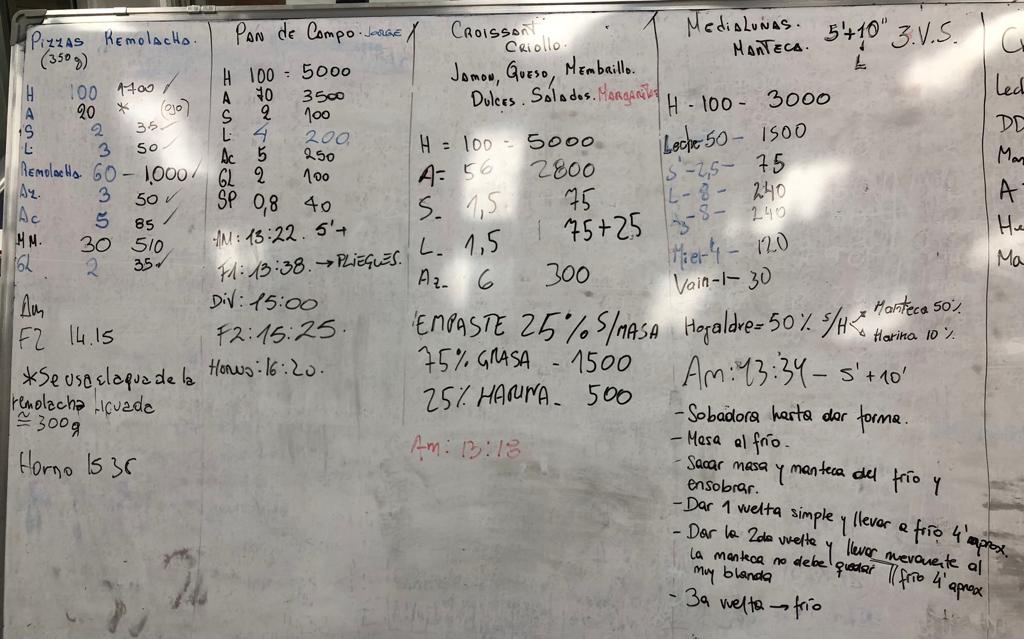 Pizzas Remolacha.
(350g)
H 100 1700
A 20 * (300)
S 2 35
L 3 50
Remolacha 60 - 1,000
Az. 3 50
Ac 5 85
MM. 30 510
GL 2 35
Am
F2 14.15
*Se usa el agua de la
remolacha licuada
≅ 300g
Horno 15 35
Pan de Campo. JORGE
H 100 = 5000
A 70 3500
S 2 100
L 4 200
Ac 5 250
GL 2 100
SP 0,8 40
AM: 13:22. 5'+
F1: 13:38. → PLIEGUES.
Div: 15:00
F2: 15:25.
Horno: 16:20.
Croissant
Criollo.
Jamon, Queso, Membrillo.
Dulces. Salados. Margaritas
H = 100 = 5000
A = 56 2800
S_ 1,5 75
L_ 1,5 75+25
Az_ 6 300
EMPASTE 25% S/MASA
75% GRASA - 1500
25% HARINA_ 500
Am: 13:13
Medialunas. 5'+10" 3.V.S.
Manteca. L
H - 100 - 3000
Leche - 50 - 1500
S - 2,5 - 75
L - 8 - 240
- 8 - 240
Miel - 4 - 120
Vain - 1 - 30
Hojaldre = 50% s/H < Manteca 50%
Harina 10%
Am: 13:34 - 5'+10'
- Sobadora hasta dar forma.
- Masa al frío.
- Sacar masa y manteca del frío y
ensobrar.
- Dar 1 vuelta simple y llevar a frío 4' aprox.
- Dar la 2da vuelta y llevar nuevamente al
la manteca no debe quedar // frío 4' aprox
muy blanda
- 3a vuelta → frío
Lec
DD
Ma
A -
He
Ma